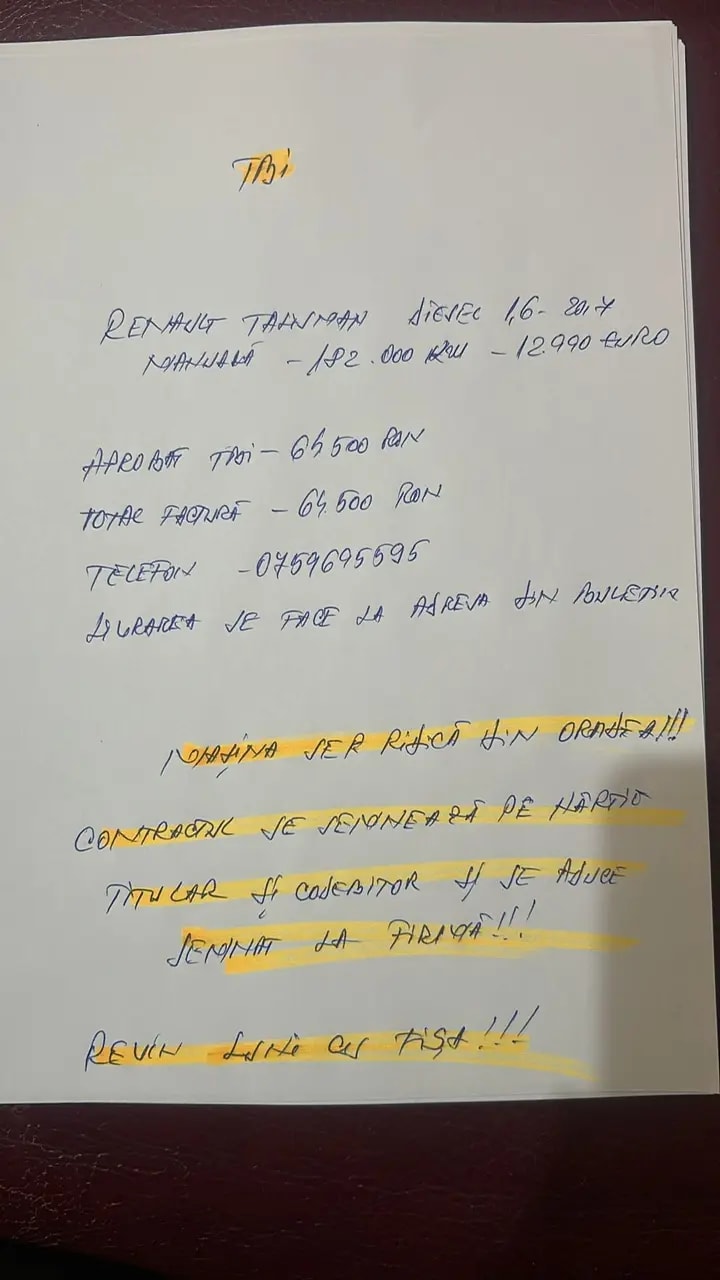 TBi
RENAULT TALISMAN DIESEL 1,6 - 2017
MANUALĂ - 182.000 KM - 12.990 EURO
APROBAT TBi - 64.500 RON
TOTAL FACTURĂ - 64.500 RON
TELEFON - 0759695595
LIVRAREA SE FACE LA ADRESA DIN BULETIN
MAȘINA SE RIDICĂ DIN ORADEA!!!
CONTRACTUL SE SEMNEAZĂ PE HÂRTIE
TITULAR ȘI CODEBITOR ȘI SE ADUCE
SEMNAT LA FIRMĂ!!!
REVIN LUNI CU FIȘA!!!